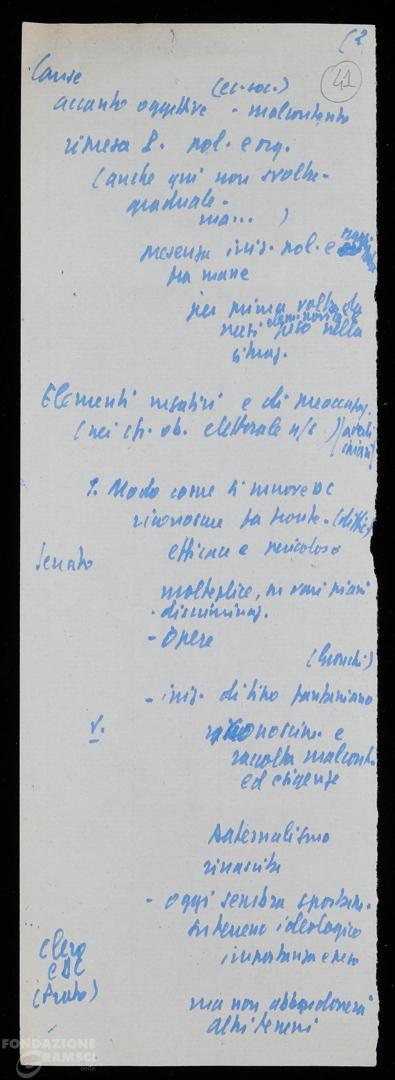 (2
41
Cause
(ec. soc.)
accanto oggettive - malcontento
ripresa P. pol. e org.
(anche qui non svolta -
graduale -
ma... )
presenza iniz. pol. e
fra masse
per prima volta da
mesi peso nella
situaz.
Elementi negativi e di preoccupaz.
(nei cfr. ob. elettorale n/s)
1. Modo come si muove DC
riconoscere fa fronte -
Senato
efficace e pericoloso
molteplice, su vari piani
- discriminaz.
- Opere
(Gronchi)
- iniz. di tipo fanfaniano
V.
riconoscim. e
raccolta malcont.
ed esigenze
Paternalismo
rinascita
- oggi sembra spostare
su terreno ideologico
importanza
Clero
e DC
(Prato)
ma non abbandonerà
altri terreni
FONDAZIONE
GRAMSCI